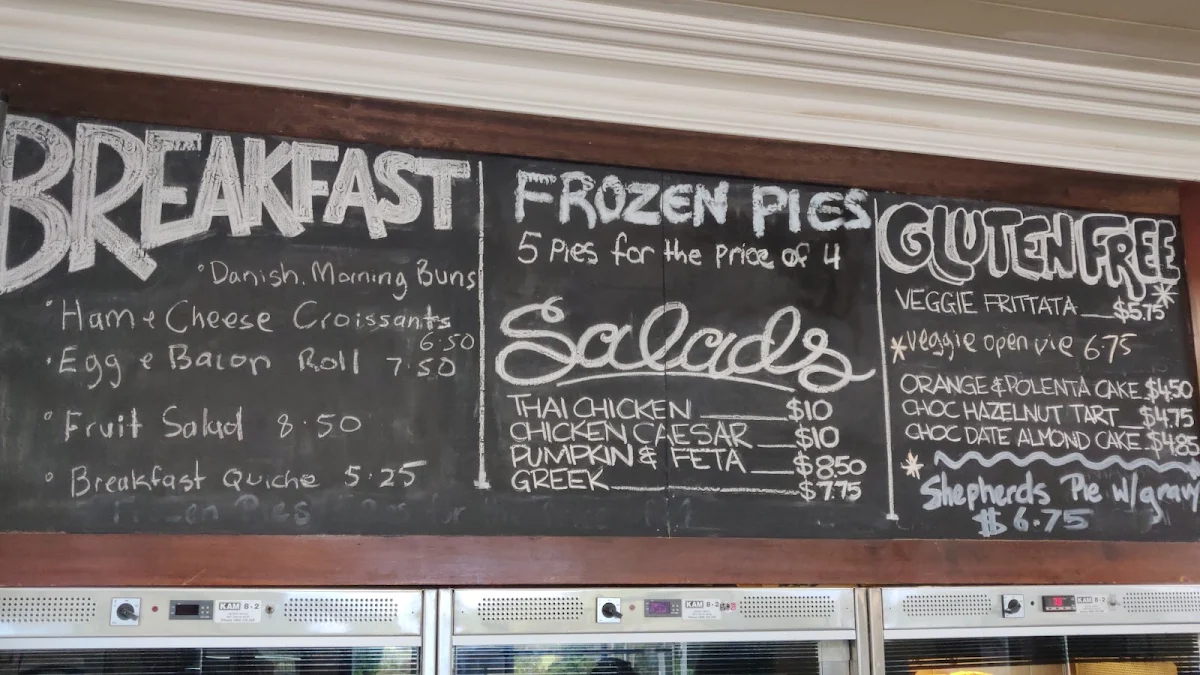 BREAKFAST
Danish. Morning Buns
Ham & Cheese Croissants
6.50
Egg & Bacon Roll 7.50
Fruit Salad 8.50
Breakfast Quiche 5.25
FROZEN PIES
5 Pies for the price of 4
Salads
THAI CHICKEN $10
CHICKEN CAESAR $10
PUMPKIN & FETA $8.50
GREEK $7.75
GLUTEN FREE
VEGGIE FRITTATA $5.75
*veggie open pie 6.75
ORANGE & POLENTA CAKE $4.50
CHOC HAZELNUT TART $4.75
CHOC DATE ALMOND CAKE $4.85
*Shepherds Pie w/gravy
$6.75
KAM 8-2
KAM 8-2
KAM 8-2